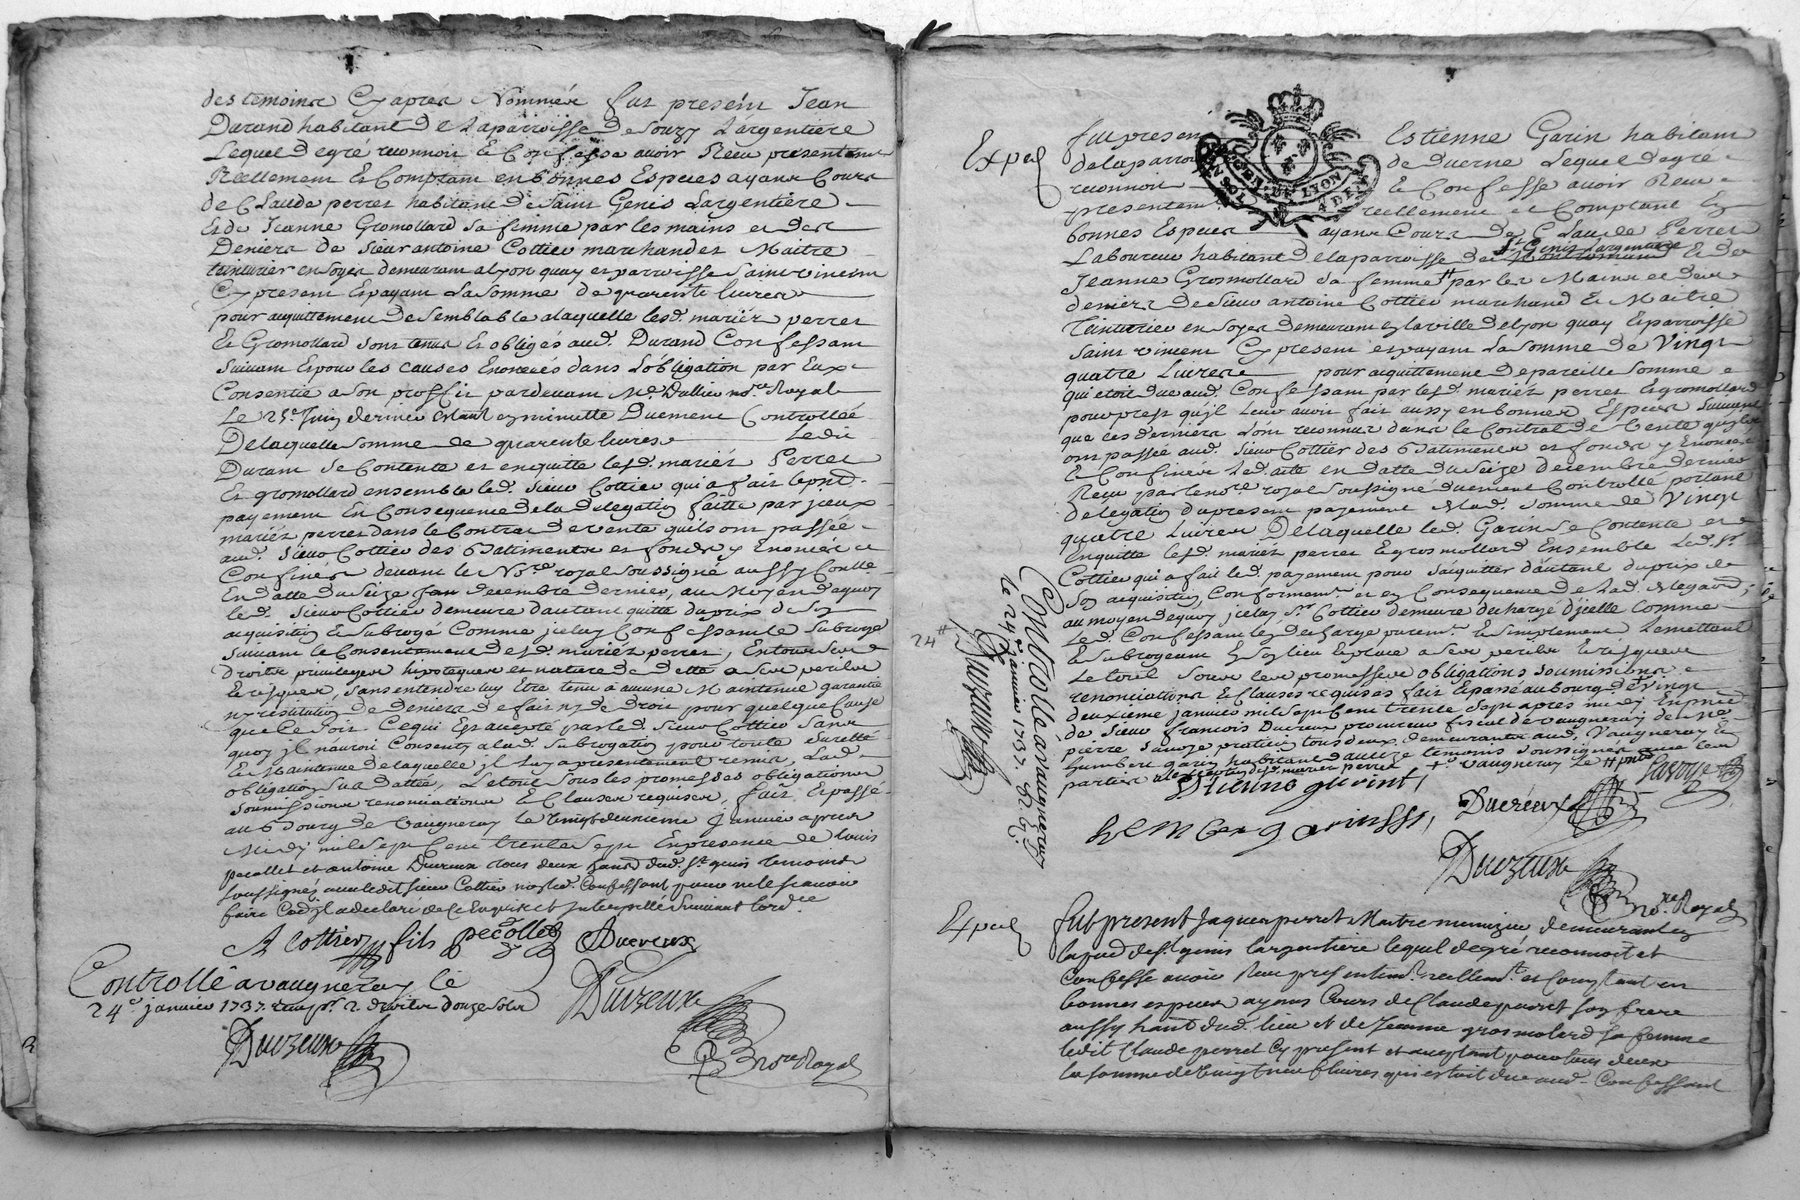 des temoins Cyapres Nommés fut present Jean
Durand habitant de la parroisse de Souzy L'argentiere
Lequel de gré reconnoit et Confesse avoir Receu presentem.
Reellement et Comptant en bonnes Especes ayant Cours
de Claude perret habitant de Saint Genis L'argentiere
et de Jeanne Gromollard sa femme par les mains et des
Deniers de Sieur antoine Cottier marchand et Maitre
teinturier en soyes demeurant a lyon quay et parroisse Saint vincent
Cy present et payant La somme de quarente livres
pour acquittement de semblable a laquelle lesd. mariés perret
Et Gromollard sont tenus et obligés aud. Durand Confessant
suivant et pour les causes Enoncées dans L'obligation par Eux
Consentie a son proffit pardevant Me. Dallier nore. Royal
Le 25e Juin dernier Estant en minutte Duement Controllée
De laquelle somme de quarente livres Ledit
Durant se Contente et en quitte lesd. mariés Perret
Et gromollard ensemble led. Sieur Cottier qui a fait le pnt.
payement En Consequence de la delegation faitte par yceux
mariés perret dans le Contrat de vente qu'ils ont passée
aud. Sieur Cottier des batiments et fonds y Enoncés et
Confinés devant le Nore. royal soussigné aussy Conlle.
En datte du seize decembre dernier, au Moyen de quoy
led. Sieur Cottier demeure d'autant quitte du prix de son
acquisition et subrogé Comme jceluy Confessant le subroge
suivant le Consentement desd. mariés perret, En tous ses
droits privileges hipoteques et nature de dette a ses perils
et risques, sans entendre luy Etre tenu a aucune Maintenue garantie
ny restitution de deniers de fait ny de droit pour quelque Cause
que Ce soit Ce qui Est accepté par led. Sieur Cottier sans
quoy jl n'auroit Consenty a lad. subrogation pour toute Suretté
Et Maintenue de laquelle jl luy a presentement remis, Lad.
obligation sus dattée, Le tout sous les promesses obligations
soumissions renonciations et Clauses requises, fait Et passé
au bourg de Vaugneray le vingt deuxieme janvier apres
Midy mil sept Cent trente sept En presence de Louis
pecollet et antoine Ducreux tous deux temoins
soussignés avec ledit sieur Cottier non led. Confessant pour ne le scavoir
faire Comme jl a declaré de Ce Enquis et Interpellé Suivant lord.ce
A Cottier fils pecollet ADucreux
Controllé a vaugneray le
24e janvier 1737. 2. droits douze sols
Duvzeux
Duvzeux
Nore Royal
Exped
fut present Estienne Garin habitant
de la parroisse de duerne Lequel de gré
reconnoit Et Confesse avoir Receu
presentement reellement et Comptant En
bonnes Especes ayant Cours de Claude Perret
GEN. DE LYON
UN SOL 4 DEN.
Laboureur habitant de la parroisse de St Genis Largentiere Et de
Jeanne Grosmollard sa femme par les Mains et des
deniers de Sieur antoine Cottier marchand Et Maitre
Teinturier en soyes demeurant en la ville de lyon quay Et parroisse
Saint vincent Cy present et payant La somme de Vingt
quatre Livres pour acquittement de pareille somme
qui etoit due aud. Confessant par lesd. mariés perret Et gromollard
pour prest qu'jl Leur avoit fait aussy en bonnes Especes suivant
que ces derniers L'ont reconnu dans le Contrat de Vente qu'jls
ont passée aud. Sieur Cottier des batiments et fonds y Enoncés
Et Confinés Led. acte en datte du seize decembre dernier
Receu par le nore. royal soussigné duement Controllé portant
delegation du present payement De lad. somme de Vingt
quatre Livres De laquelle led. Garin se Contente et
En quitte lesd. mariés perret Et grosmollard Ensemble Led. Sr.
Cottier qui a fait led. payement pour s'acquitter d'autant du prix de
son acquisition Conformemt. et en Consequence de Lad. delegation;
au moyen de quoy jceluy Sr. Cottier demeure dechargé d'jcelle Comme
Led. Confessant l'en decharge purem. Et simplement Le mettant
Et subrogeant En son lieu Et place a ses perils Et risques
Le tout sous les promesses obligations soumissions
renonciations Et Clauses requises fait Et passé au bourg de vingt
deuxieme janvier mil sept Cent trente sept apres midy En presence
de Sieur francois Ducreux procureur fiscal de vaugneray de Me.
pierre Savoye praticien tous deux demeurants aud. Vaugneray Et
humbert garin habitant temoins soussignés avec les
parties vaugneray le
Etienne guerint
hember garin
Ducreux
Savoye
Duvzeux
Nore. Royal
24tt
Controllé a vaugneray
Le 24e janvier 1737. R.
Duvzeux
Exped
fut present Jaques perret Maitre menuizier demeurant en
la parr. de St. genis largentiere lequel de gré reconnoit et
Confesse avoir Receu presentemt. reellemt. et Comptant en
bonnes especes ayant Cours de Claude perret son frere
aussy habt. dud. lieu et de Jeanne grosmolard sa femme
ledit Claude perret Cy present et acceptant pour tous deux
la somme de vingt neuf livres qui estoit due aud. Confessant